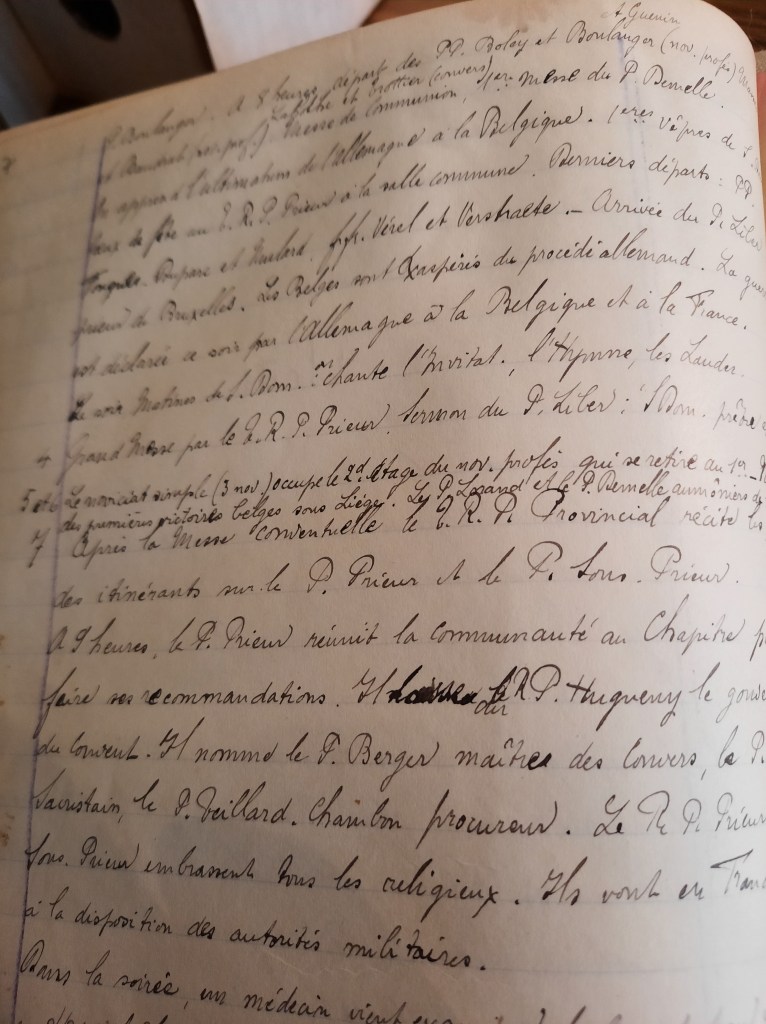 A Guenin
P. Boulanger. A 8 heures départ des PP. Boley et Boulanger (nov. profès)
et Baudrat (nov. prof.) et Grottier (convers)
Messe de Communion, 1ère messe du P. Bemelle.
On apprend l'ultimatum de l'allemagne à la Belgique. 1ères Vêpres de S.
Vœux de fête au T. R. P. Prieur à la salle commune. Derniers départs : PP.
et Heulard, frfr. Vérel et Verstraete. – Arrivée du P. Liber
prieur de Bruxelles. Les Belges sont exaspérés du procédé allemand. La
est déclarée ce soir par l'allemagne à la Belgique et à la France.
Le soir Matines de S. Dom. on chante l'Invitat., l'Hymne, les Laudes.
4 Grand Messe par le T. R. P. Prieur. Sermon du P. Liber : "S Dom. prêtre
5 et 6 Le noviciat simple (3 nov.) occupe le 2d étage du nov. profès, qui se retire au 1er.
des premières victoires belges sous Liège. Les P. Lozand et le P. Remelle aumôniers
7 Après la Messe conventuelle le T. R. P. Provincial récite les
des itinérants sur le P. Prieur et le P. Sous-Prieur.
A 9 heures, le P. Prieur réunit la communauté au Chapitre
faire ses recommandations. Il R P. Hugueny le
du Couvent. Il nomme le P. Berger maître des Convers, le P.
Sacristain, le P. Veillard-Chambon procureur. Le R P. Prieur
Sous-Prieur embrassent tous les religieux. Ils vont en
à la disposition des autorités militaires.
Dans la soirée, un médecin vient